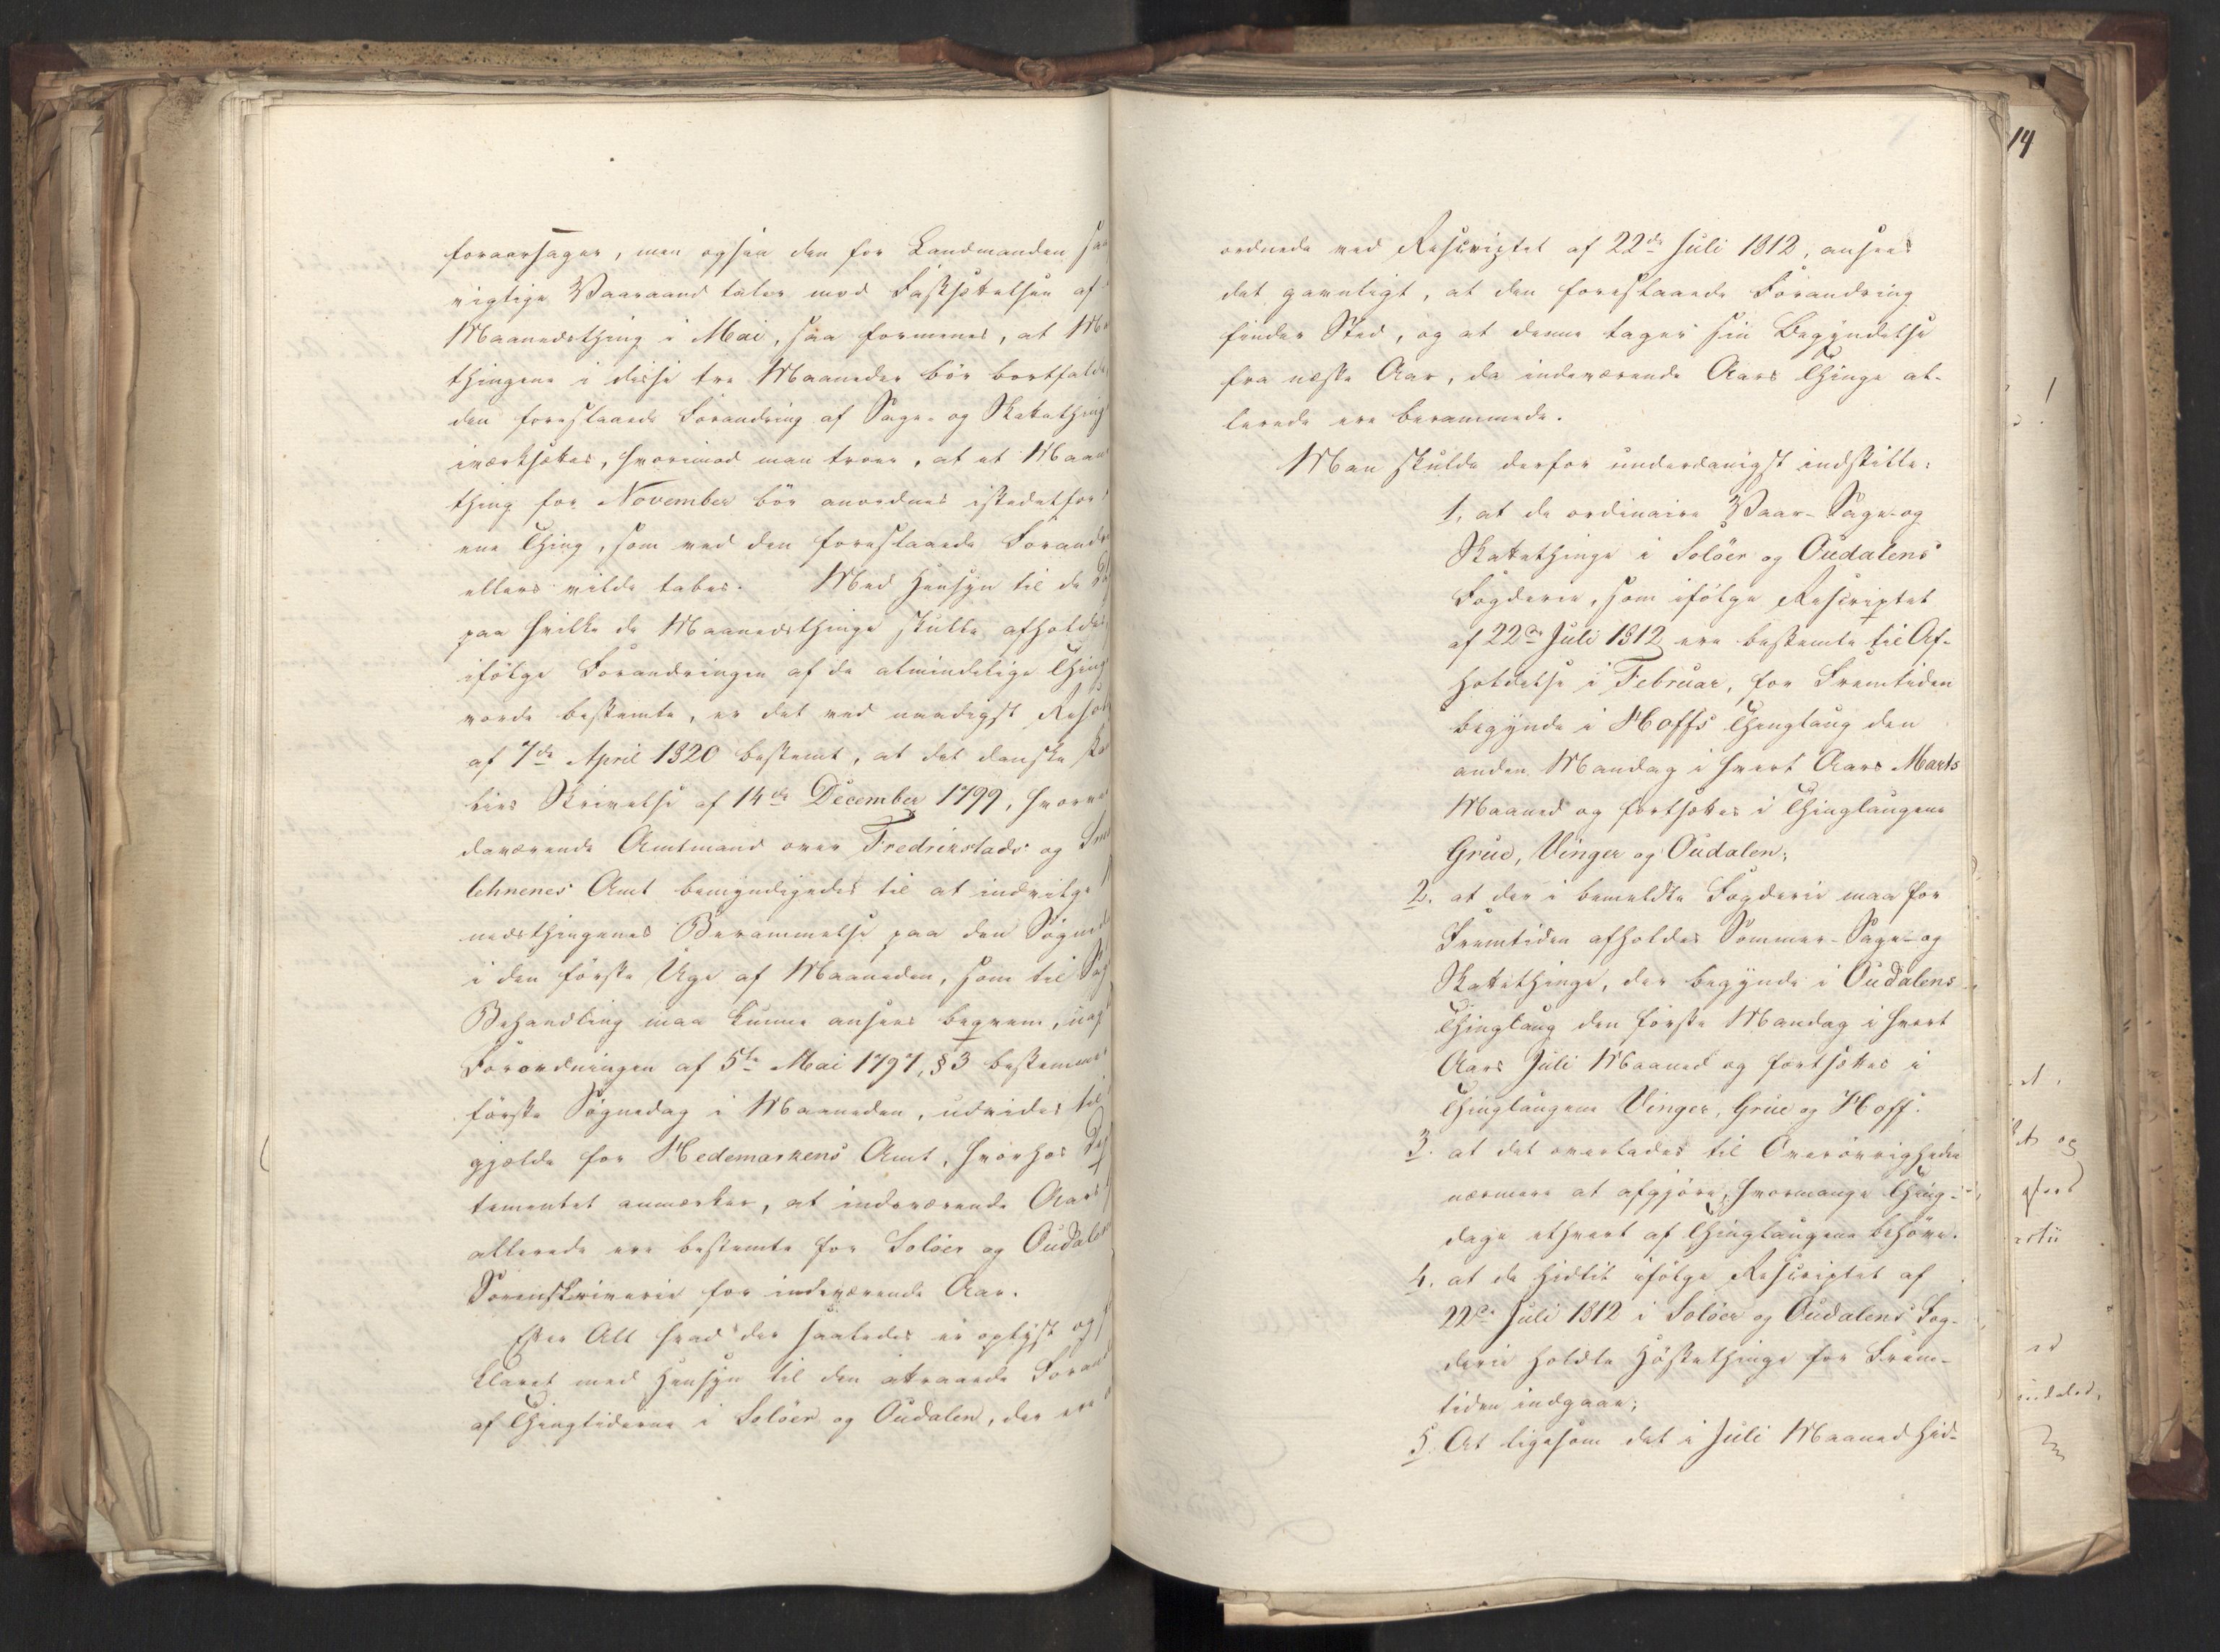 foraarsager, men ogsaa den for Landmanden saa
vigtige Vaaraand taler mod Fastsættelsen af
Maanedsthing i Mai, saa formenes, at Ma
thingene i disse tre Maaneder bör bortfalde,
den foreslaaede Forandring af Sage- og Skatething
iværksættes, hvorimod man troer, at et Maan
thing for November bör anordnes istedetfor
ene Thing, som ved den foreslaaede Forandr
ellers vilde tabes. Med Hensyn til de
paa hvilke de Maanedsthinge skulle afholdes,
ifölge Forandringen af de almindelige Thing
vorde bestemte, er det ved naadigst Resol
af 7de April 1820 bestemt, at det danske
lies Skrivelse af 14de December 1799, hvorved
daværende Amtmand over Fredrikstads og Sma
lehnenes Amt bemyndigedes til at indvilge
nedsthingenes Berammelse paa den Sögned
i den förste Uge af Maaneden, som til Sag
Behandling maa kunne ansees beqvem, uag
Forordningen af 5te Mai 1797, §3 bestemmer
förste Sögnedag i Maaneden, udvides til
gjelde for Hedemarkens Amt, hvorhos Dep
tementet anmærker, at indeværende Aars
allerede ere bestemte for Solöer og Oudalen
Sorenskriverie for indeværende Aar.
Efter Alt hvad der saaledes er oplyst og
klaret med Hensyn til den attraaede Forand
af Thingtiderne i Solöer og Oudalen, der ere
14
ordnede ved Rescriptet af 22de Juli 1812, ansees
det gavnligt, at den foreslaaede Forandring
finder Sted, og at denne tager sin Begyndelse
fra næste Aar, da indeværende Aars Thinge al-
lerede ere berammede.
Man skulde derfor underdanigst indstille:
1. at de ordinaire Vaar- Sage- og
Skattethinge i Solöer og Oudalens
Fogderie, som ifölge Rescriptet
af 22de Juli 1812 ere bestemte til Af-
holdelse i Februar, for Fremtiden
begynde i Hoffs Thinglaug den
anden Mandag i hvert Aars Marts
Maaned og fortsættes i Thinglaugene
Grue, Vinger og Oudalen;
2. at der i bemeldte Fogderie maa for
Fremtiden afholdes Sommer- Sage- og
Skattethinge, der begynde i Oudalens
Thinglaug den förste Mandag i hvert
Aars Juli Maaned og fortsættes i
Thinglaugene Vinger, Grue og Hoff.
3. at det overlades til Overövrigheden
nærmere at afgjöre, hvormange Thing-
dage ethvert af Thinglaugene behöve.
4. at de hidtil ifölge Rescriptet af
22de Juli 1812 i Solöer og Oudalens Fog-
derie holdte Höstthinge for Frem-
tiden indgaae;
5. At ligesom det i Juli Maaned hid-